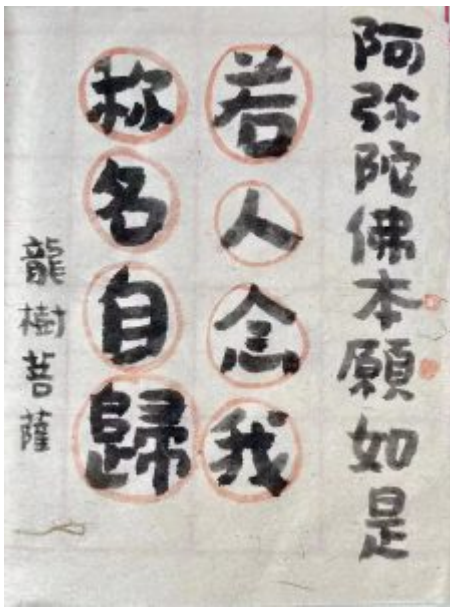 阿弥陀佛本願如是
若人念我
称名自歸
龍樹菩薩